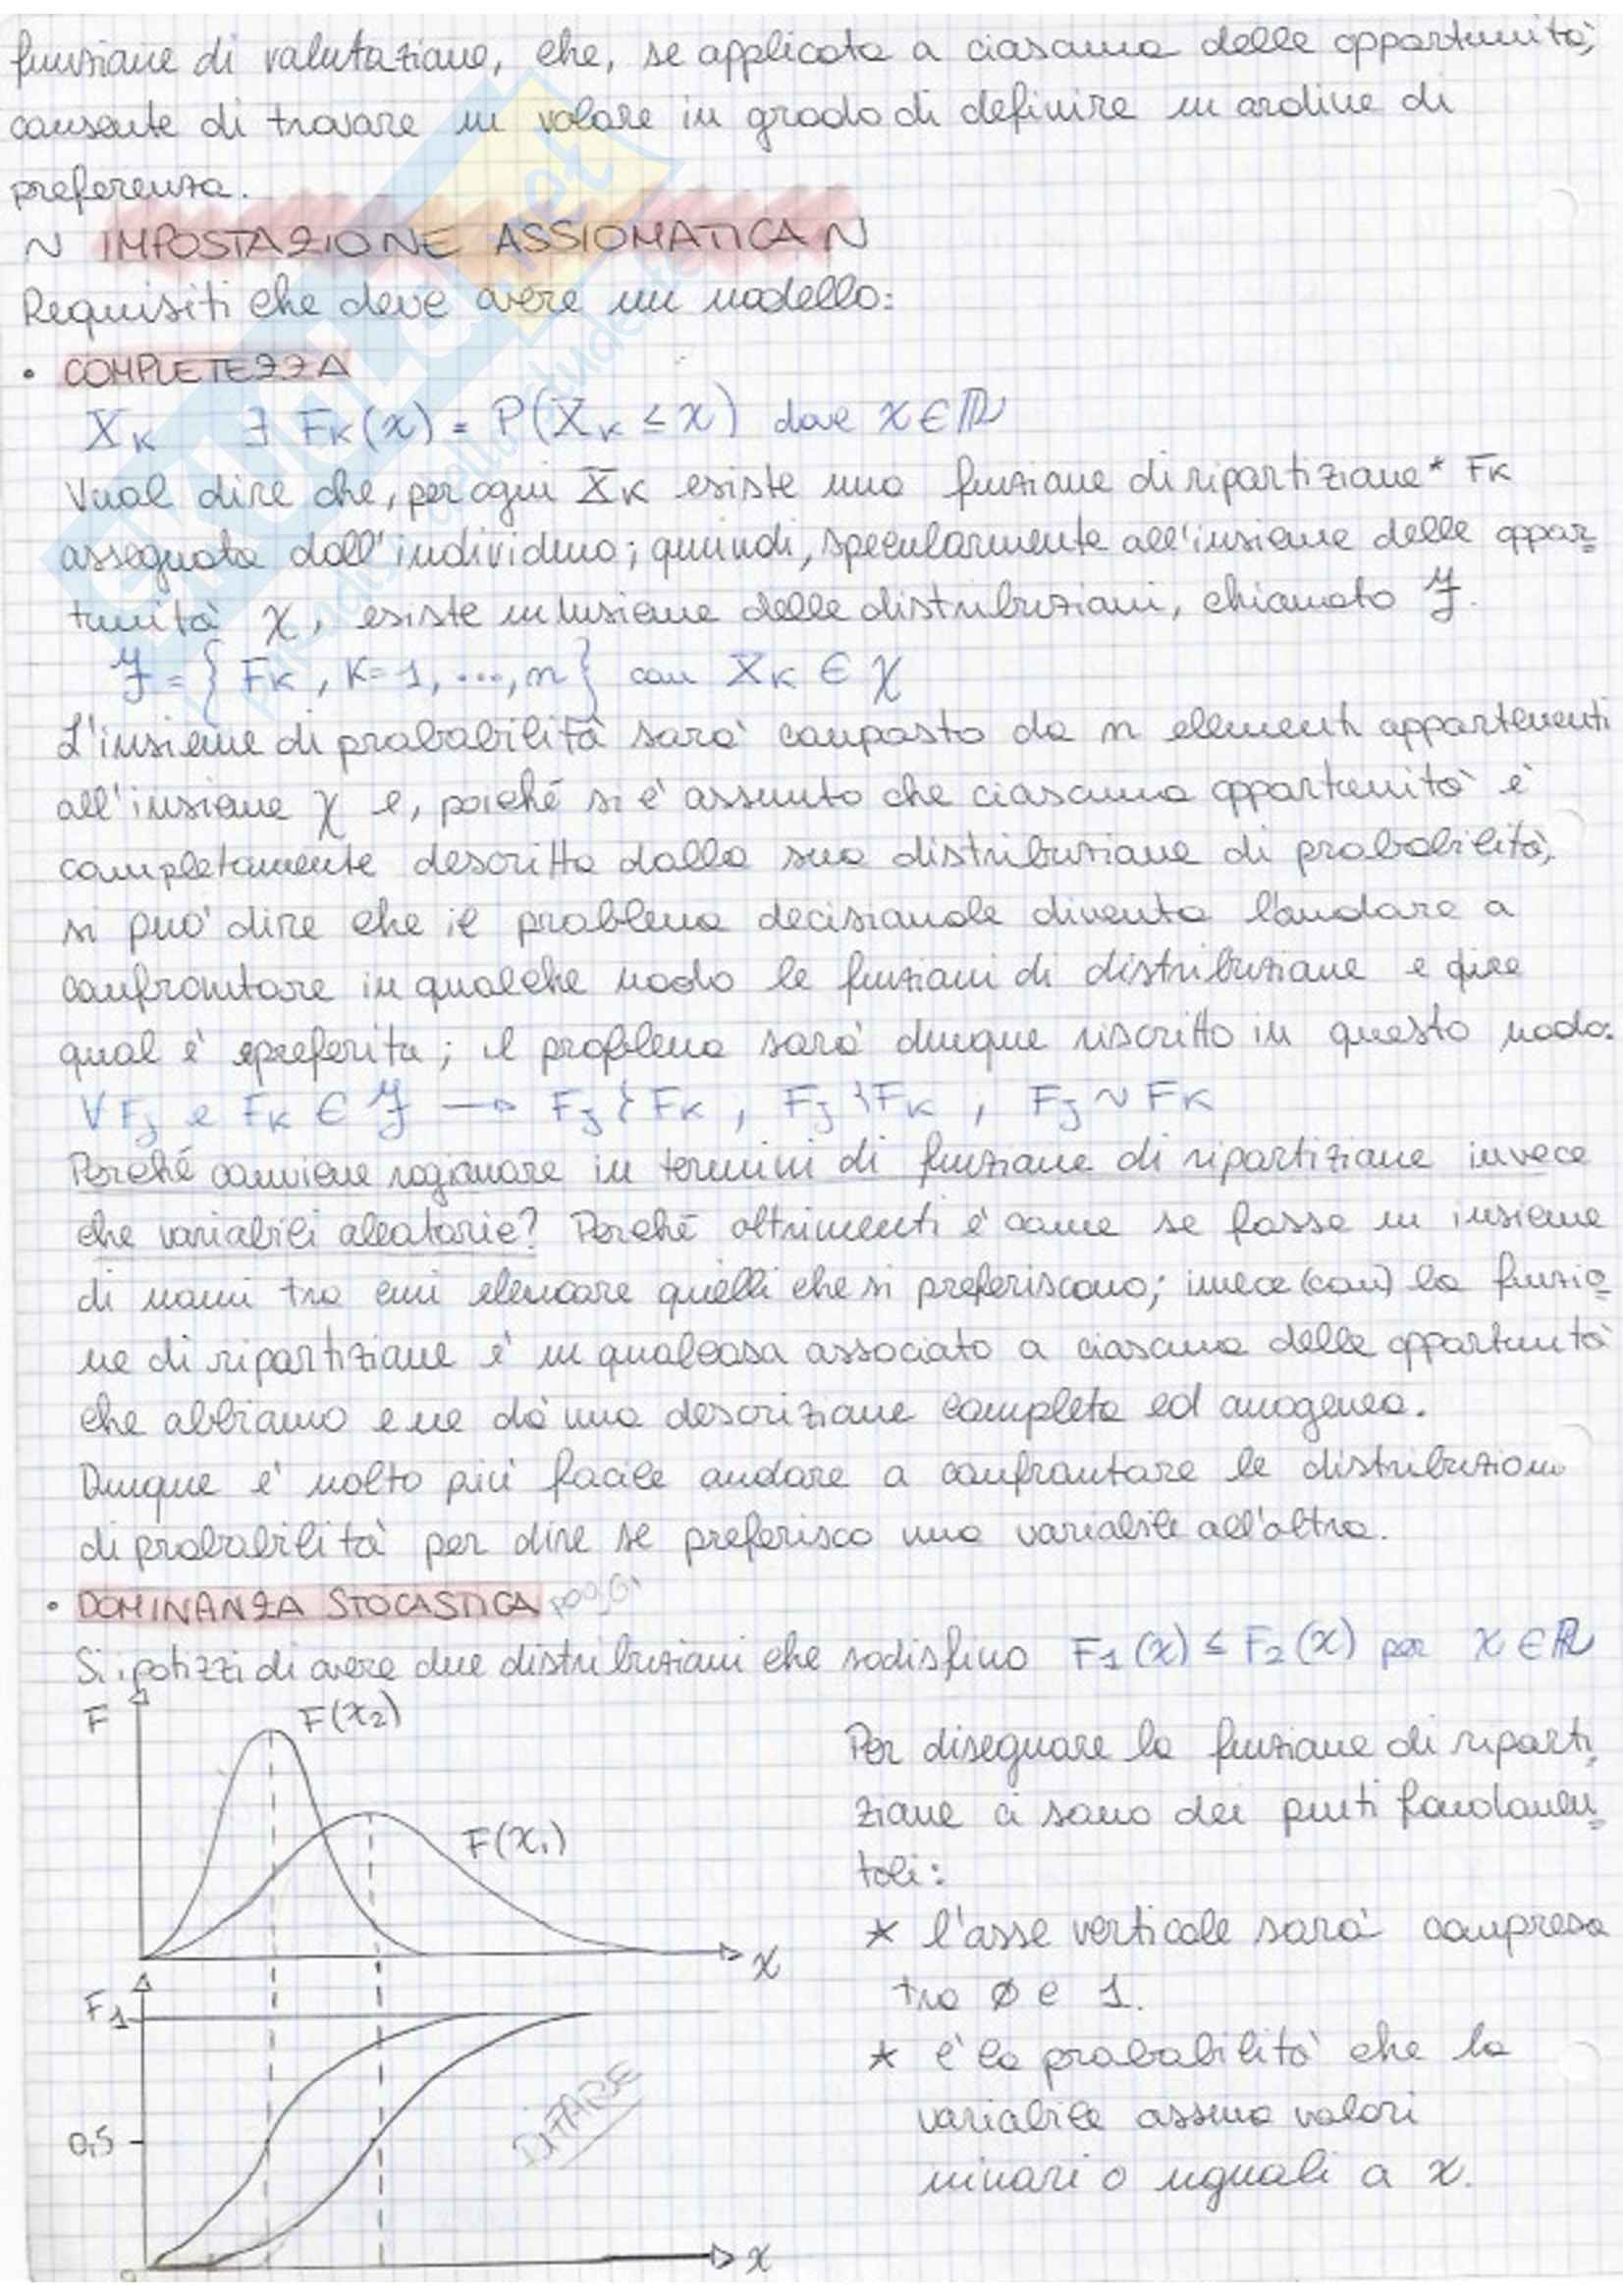 funzione di valutazione, che, se applicata a ciascuna delle opportunità,
consente di trovare un valore in grado di definire un ordine di
preferenza.
~ IMPOSTAZIONE ASSIOMATICA ~
Requisiti che deve avere un modello:
• COMPLETEZZA
X_K ∃ F_K(x) = P(X_K ≤ x) dove x ∈ ℝ
Vuol dire che, per ogni X_K esiste una funzione di ripartizione* F_K
assegnata dall'individuo; quindi, specularmente all'insieme delle oppor=
tunità χ, esiste un insieme delle distribuzioni, chiamato ℱ.
ℱ = { F_K, K=1, ..., n } con X_K ∈ χ
L'insieme di probabilità sarà composto da n elementi appartenenti
all'insieme χ e, poiché si è assunto che ciascuna opportunità è
completamente descritta dalla sua distribuzione di probabilità,
si può dire che il problema decisionale diventa l'andare a
confrontare in qualche modo le funzioni di distribuzione e dire
qual è preferita; il problema sarà dunque riscritto in questo modo:
∀ F_J e F_K ∈ ℱ → F_J ≻ F_K, F_J ≺ F_K, F_J ~ F_K
Perché conviene ragionare in termini di funzione di ripartizione invece
che variabili aleatorie? Perché altrimenti è come se fosse un insieme
di nomi tra cui elencare quelli che si preferiscono; invece (con) la funzio=
ne di ripartizione è un qualcosa associato a ciascuna delle opportunità
che abbiamo e ne dà una descrizione completa ed omogenea.
Dunque è molto più facile andare a confrontare le distribuzioni
di probabilità per dire se preferisco una variabile all'altra.
• DOMINANZA STOCASTICA
Si ipotizzi di avere due distribuzioni che sodisfino F_1(x) ≤ F_2(x) per x ∈ ℝ
F
F(x_2)
F(x_1)
x
Per disegnare la funzione di riparti=
zione ci sono dei punti fondamen=
tali:
* l'asse verticale sarà compresa
tra Ø e 1.
* è la probabilità che la
variabile assuma valori
minori o uguali a x.
F
1
0,5
0
x